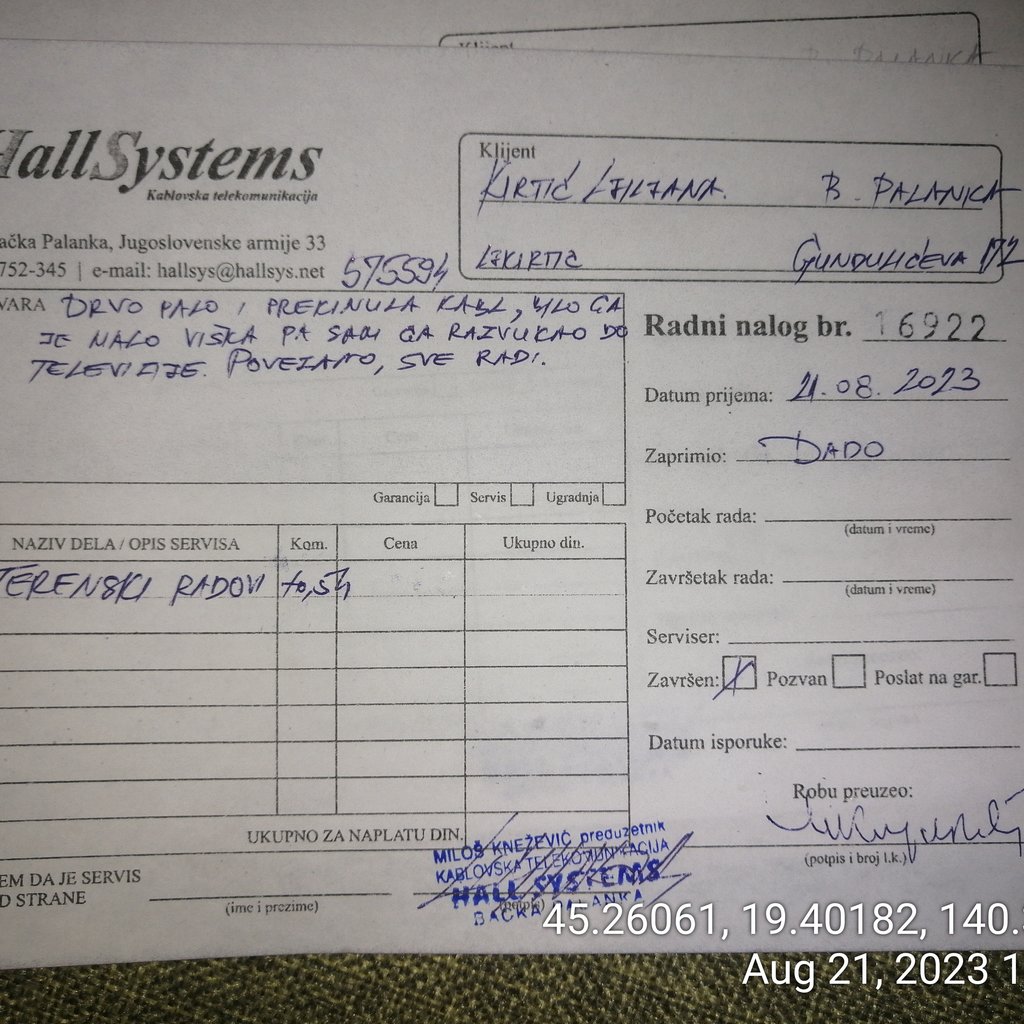 Klijent
B. PALANKA
HallSystems
Kablovska telekomunikacija
ačka Palanka, Jugoslovenske armije 33
752-345 | e-mail: hallsys@hallsys.net
575594
Klijent
KIRTIĆ LJILJANA. B. PALANKA
LJKIRTIC GUNDULIĆEVA 172
VARA DRVO PALO I PREKINULA KABL, BILO GA
JE MALO VIŠKA PA SAM GA RAZVUKAO DO
TELEVIZIJE. POVEZANO, SVE RADI.
Garancija Servis Ugradnja
Radni nalog br. 16922
Datum prijema: 21.08.2023
Zaprimio: DADO
Početak rada:
(datum i vreme)
Završetak rada:
(datum i vreme)
Serviser:
Završen: X Pozvan Poslat na gar.
Datum isporuke:
Robu preuzeo:
(potpis i broj l.k.)
NAZIV DELA / OPIS SERVISA Kom. Cena Ukupno din.
TERENSKI RADOVI 0,5h
UKUPNO ZA NAPLATU DIN.
EM DA JE SERVIS
D STRANE
(ime i prezime)
(potpis)
MILOŠ KNEŽEVIĆ preduzetnik
KABLOVSKA TELEKOMUNIKACIJA
HALL SYSTEMS
BAČKA PALANKA
45.26061, 19.40182, 140.
Aug 21, 2023 1